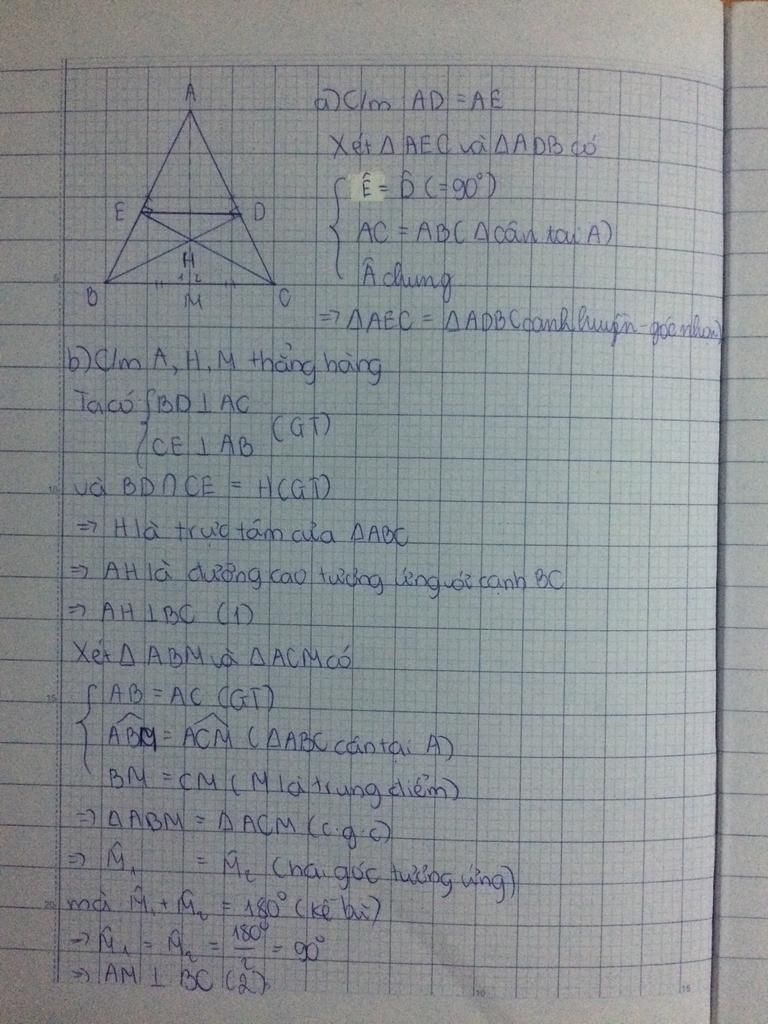 A
E
D
H
1 2
B
M
C
a) C/m AD = AE
Xét Δ AEC và Δ ADB có
Ê = D̂ (= 90°)
AC = AB (Δ cân tại A)
Â chung
=> Δ AEC = Δ ADB (cạnh huyền - góc nhọn)
b) C/m A, H, M thẳng hàng
Ta có { BD ⊥ AC
CE ⊥ AB (GT)
và BD ∩ CE = H (GT)
=> H là trực tâm của Δ ABC
=> AH là đường cao tương ứng với cạnh BC
=> AH ⊥ BC (1)
Xét Δ ABM và Δ ACM có
AB = AC (GT)
ABM = ACM (Δ ABC cân tại A)
BM = CM (M là trung điểm)
=> Δ ABM = Δ ACM (c.g.c)
=> M̂₁ = M̂₂ (hai góc tương ứng)
mà M̂₁ + M̂₂ = 180° (kề bù)
=> M̂₁ = M̂₂ = 180°/2 = 90°
=> AM ⊥ BC (2)